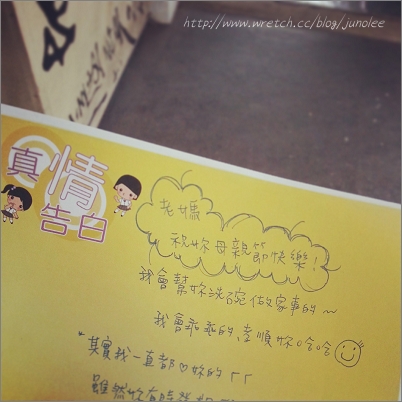 http://www.wretch.cc/blog/junolee
真情
告白
老媽
祝妳母親節快樂!
我會幫妳洗碗做家事的~
我會乖乖的,孝順妳哈哈
*其實我一直都♡妳的ㄏㄏ
雖然妳有時